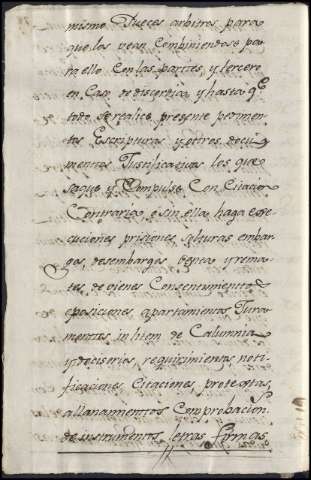 mismo Jueces arbitros para
que los vean Combiniendose pa
ra ello Con las partes, y tercero
en Caso de discordia, y hasta qe
todo se realice presente pedimen
tos Escripturas y otros docu
mentos Justificativos los que
saque y Compulse Con Citacion
Contraria, o sin ella, haga exe
cuciones priciones, solturas embar
gos, desembargos ventas y rema
tes de vienes Consentimientos
oposiciones, apartamientos Jura
mentos in litem de Calumnia
y decisorios, requirimientos noti
ficaciones, Citaciones, protextas,
allanamientos Comprobacion
de instrumentos, letras, firmas